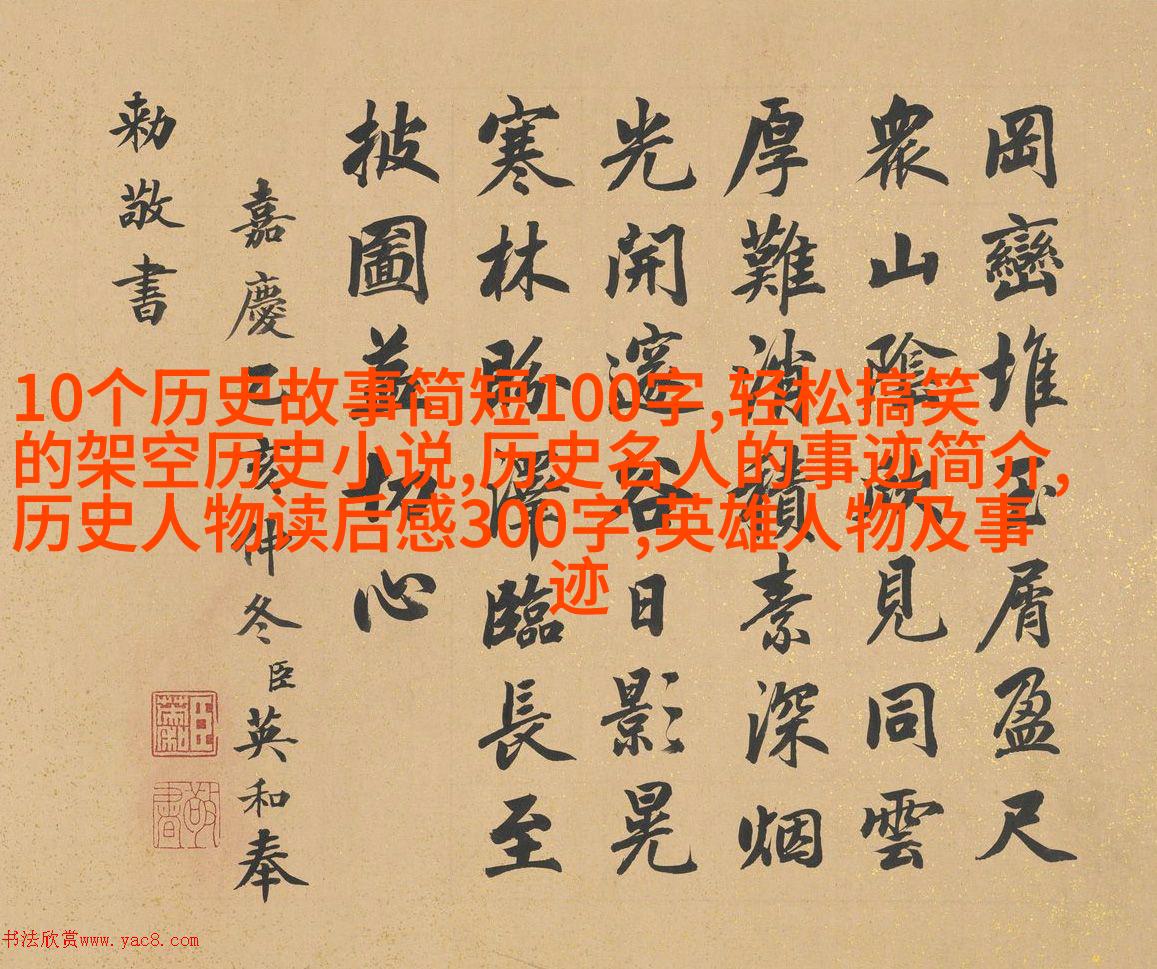 岡巒堆玉屑盈尺
衆山陰見同雲
厚難消積素深烟
光開邃谷日影晃
寒林澤臨長至
披圖益切心
嘉慶亥仲冬臣英和奉
勅敬書
10个历史故事简短100字,轻松搞笑
的架空历史小说,历史名人的事迹简介,
历史人物读后感300字,英雄人物及事
迹
书法欣赏www.yac8.com